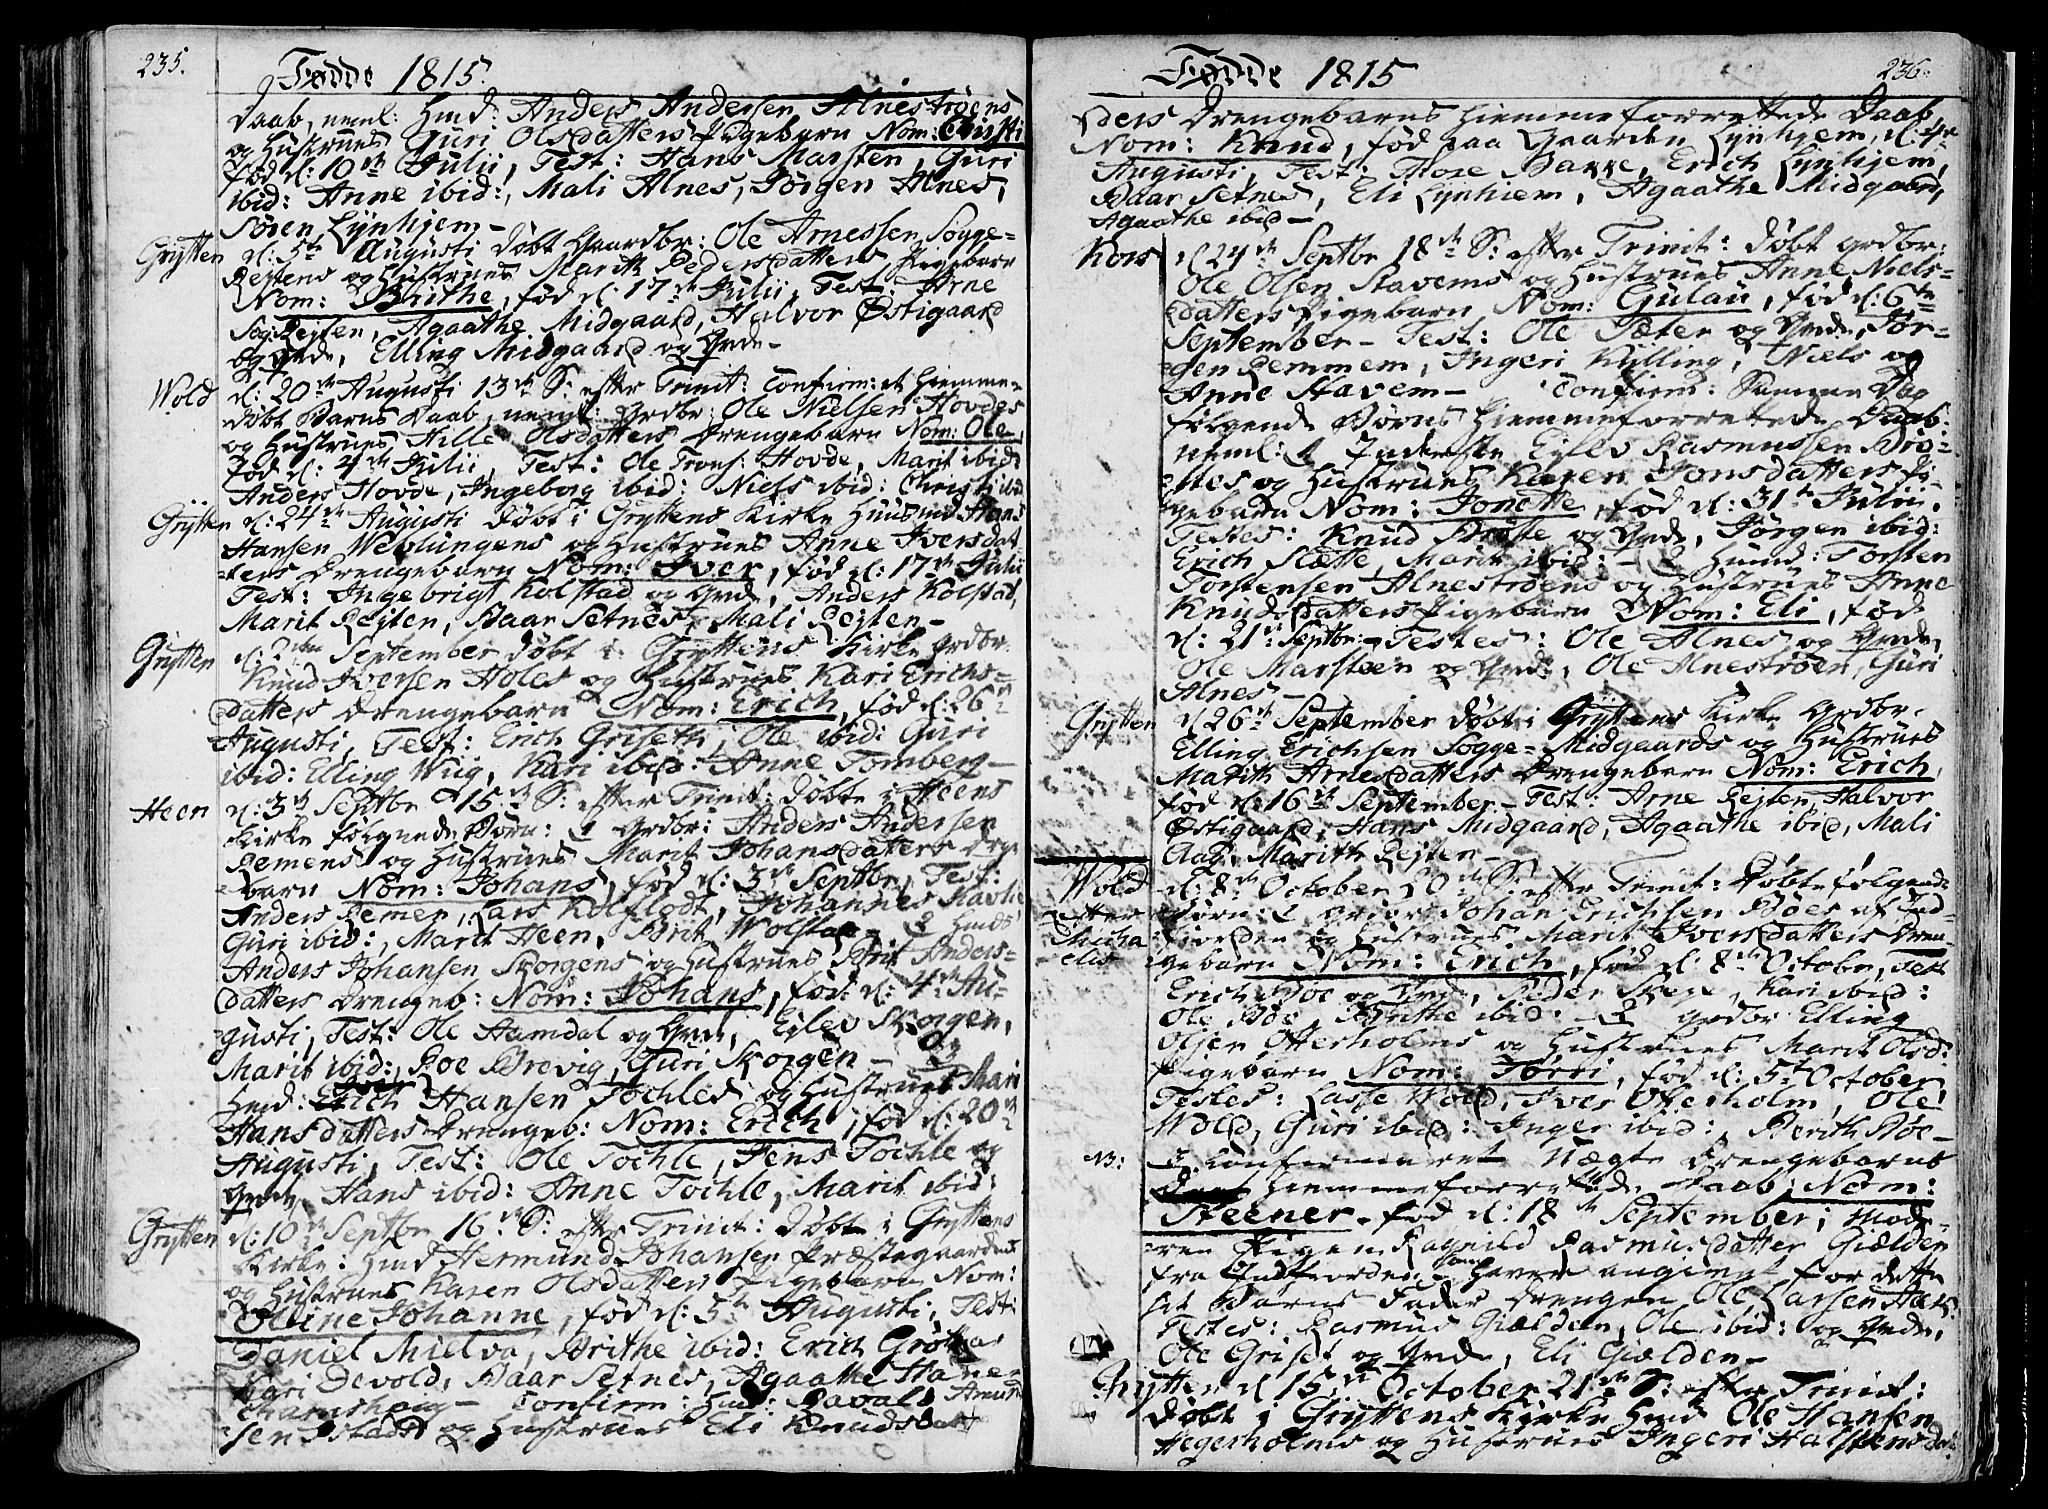 235.
Fødde 1815.
Daab, neml: Hmd: Anders Andersen Alnestrøens
og Hustrues Guri Olsdatters Pigebarn Nom: Christi
fød d: 10de Julii, Test: Hans Marsten, Guri
ibid: Anne ibid:, Mali Alnes, Jørgen Alnes,
Søren Lynhjem -
Grytten d: 5te Augusti døbt Gaardbr: Ole Arnessen Sogge-
Rejtens og Hustrues Marith Pedersdatters Pigebarn
Nom: Brithe, fød d: 17de Julii, Test: Arne
Sog Rejten, Agaathe Midgaard, Halvor Østigaard
og Qvde, Elling Midgaard og Qvde -
Wold d: 20de Augusti 13de S: efter Trinit: Confirm: et hiemme-
døbt Barns Daab, neml: Grdbr: Ole Nielsen Hovdes
og Hustrues Hille Olsdatters Drengebarn Nom: Ole,
fød d: 4de Julii, Test: Ole Hovde, Marit ibid:
Anders Hovde, Ingeborg ibid: Niels ibid: Christi ibid
Grytten d: 24de Augusti døbt i Gryttens Kirke Huusmd Hans
Hansen Weblungens og Hustrues Anne Iversdat-
ters Drengebarn Nom: Iver, fød d: 17de Julii
Test: Ingebrigt Kolstad og Qvde, Anders Kolstad,
Marit Rejten, Baar Setnes, Mali Rejten -
Grytten d: 2den September døbt i Gryttens Kirke Grdbr.
Knud Iversen Holes og Hustrues Kari Erichs-
datters Drengebarn Nom: Erich, fød d: 26de
Augusti, Test: Erich Griseth, Ole ibid: Guri
ibid: Elling Wiig, Kari ibid: Anne Tomberg -
Heen d: 3de Septbr 15de S: efter Trinit: døbte i Heens
Kirke følgnede Børn: 1 Grdbr: Anders Andersen
Remens og Hustrues Marit Johansdatters Drge
barn Nom: Johans, fød d: 3de Septbr, Test:
Anders Remen, Lars Kolflodt, Johannes Kavlie
Guri ibid:, Marit Heen, Brit Wolstad - 2 Hmds
Anders Johansen Skorgens og Hustrues Brit Anders-
datters Drengeb: Nom: Johans, fød: d: 4de Au-
gusti, Test: Ole Hamdal og Qvde, Eilev Skorgen,
Marit ibid:, Roe Brevig, Guri Skorgen - 3
Hmd: Iver Hansen Tochles og Hustrues Mari
Hansdatters Drengeb: Nom: Erich, fød d: 20de
Augusti, Test: Ole Tochle, Jens Tochle og
Qvde, Hans ibid: Anne Tochle, Marit ibid:
Grytten d: 10de Septbr 16de S: efter Trinit: døbt i Gryttens
Kirke: Hmd Hermund Johansen Præstegaardens
og Hustrues Karen Olsdatters Pigebarn Nom:
Olline Johanne, fød d: 5te Augusti, Test:
Daniel Mielva, Brithe ibid: Erich Grøttas
Kari Devold, Baar Setnes, Agaathe Hane-
Hamshaug - Confirm: Hmd: Paval
sen Istads og Hustrues Eli Knudsdat
236.
Fødde 1815
ders Drengebarns hiemmeforrettede Daab,
Nom: Knud, fød paa Gaarden Lynhjem, d: 4de
Augusti, Test: Thore Barre, Erich Lynhjem,
Baar Setnes, Eli Lynhiem, Agaathe Midgaard,
Agaathe ibid -
Kors d: 24de Septbr 18de S: efter Trinit: døbt Grdbr:
Ole Olsen Stavems og Hustrues Anne Niels-
datters Pigebarn Nom: Gulau, fød d: 6te
September - Test: Ole Sæter og Qvde, Jør-
gen Remmem, Ingeri Kylling, Niels og
Anne Stavem - Confirm: Samme Dag
følgende Børns hiemmeforrettede Daab:
neml: 1 Inderste Eilev Rasmussen Brø-
stes og Hustrues Karen Jonsdatters Pi-
gebarn Nom: Jonette, fød d: 31te Julii,
Testes: Knud Brøste og Qvde, Jørgen ibid:
Erich Slætte, Marit ibid: - 2 Huusmd: Torsten
Torstensen Alnestrøens og Hustrues Anne
Knudsdatters Pigebarn Nom: Eli, fød
d: 21de Septbr: - Testes: Ole Alnes og Qvde,
Ole Marsteen og Qvde, Ole Alnestrøen, Guri
Alnes -
Grytten d: 26de September døbt i Gryttens Kirke Grdbr.
Elling Erichsen Sogge-Midgaards og Hustrues
Marith Arnesdatters Drengebarn Nom: Erich
fød d: 16de September - Test: Arne Rejten, Halvor
Østigaard, Hans Midgaard, Agaathe ibid, Mali
Aag, Marith Rejten -
Wold d: 8de October 20de S: efter Trinit: Døbte følgende
efter Børn: 1 Johan Erichsen Bøes af Ind-
Micha fiorden og Hustrues Marit Iversdatters Dren-
elis gebarn Nom: Erich, fød d: 8de Octobr, Test
Erich Boe og Qvde, Peder, Kari ibid:
Ole Boe, Brithe ibid: - 2 Grdbr Elling
Olsen Otterholms og Hustrues Marit Olsd:
Pigebarn Nom: Torri, fød d: 5te October
Testes: Lasse Wold, Iver Otterholm, Ole
Wold, Guri ibid: Inger ibid:, Berith Boe -
NB: 3 Confirmeret Uægte Drengebarns
hiemmeforrettede Daab, Nom:
Steener - fød d: 18de September, Mode-
ren Pigen Ragnild Rasmusdatter Gielden
fra Indfiorden, haver angivet for dette
sit Barns Fader Drengen Ole Larsen
Testes: Rasmus Gielden, Ole ibid: og Qvde,
Ole Griset og Qvde, Eli Gielden -
Grytten d 15de October 21de S: efter Trinit:
døbt i Gryttens Kirke Hmd Ole Hansen
Hegerholms og Hustrues Ingeri Halstensdat